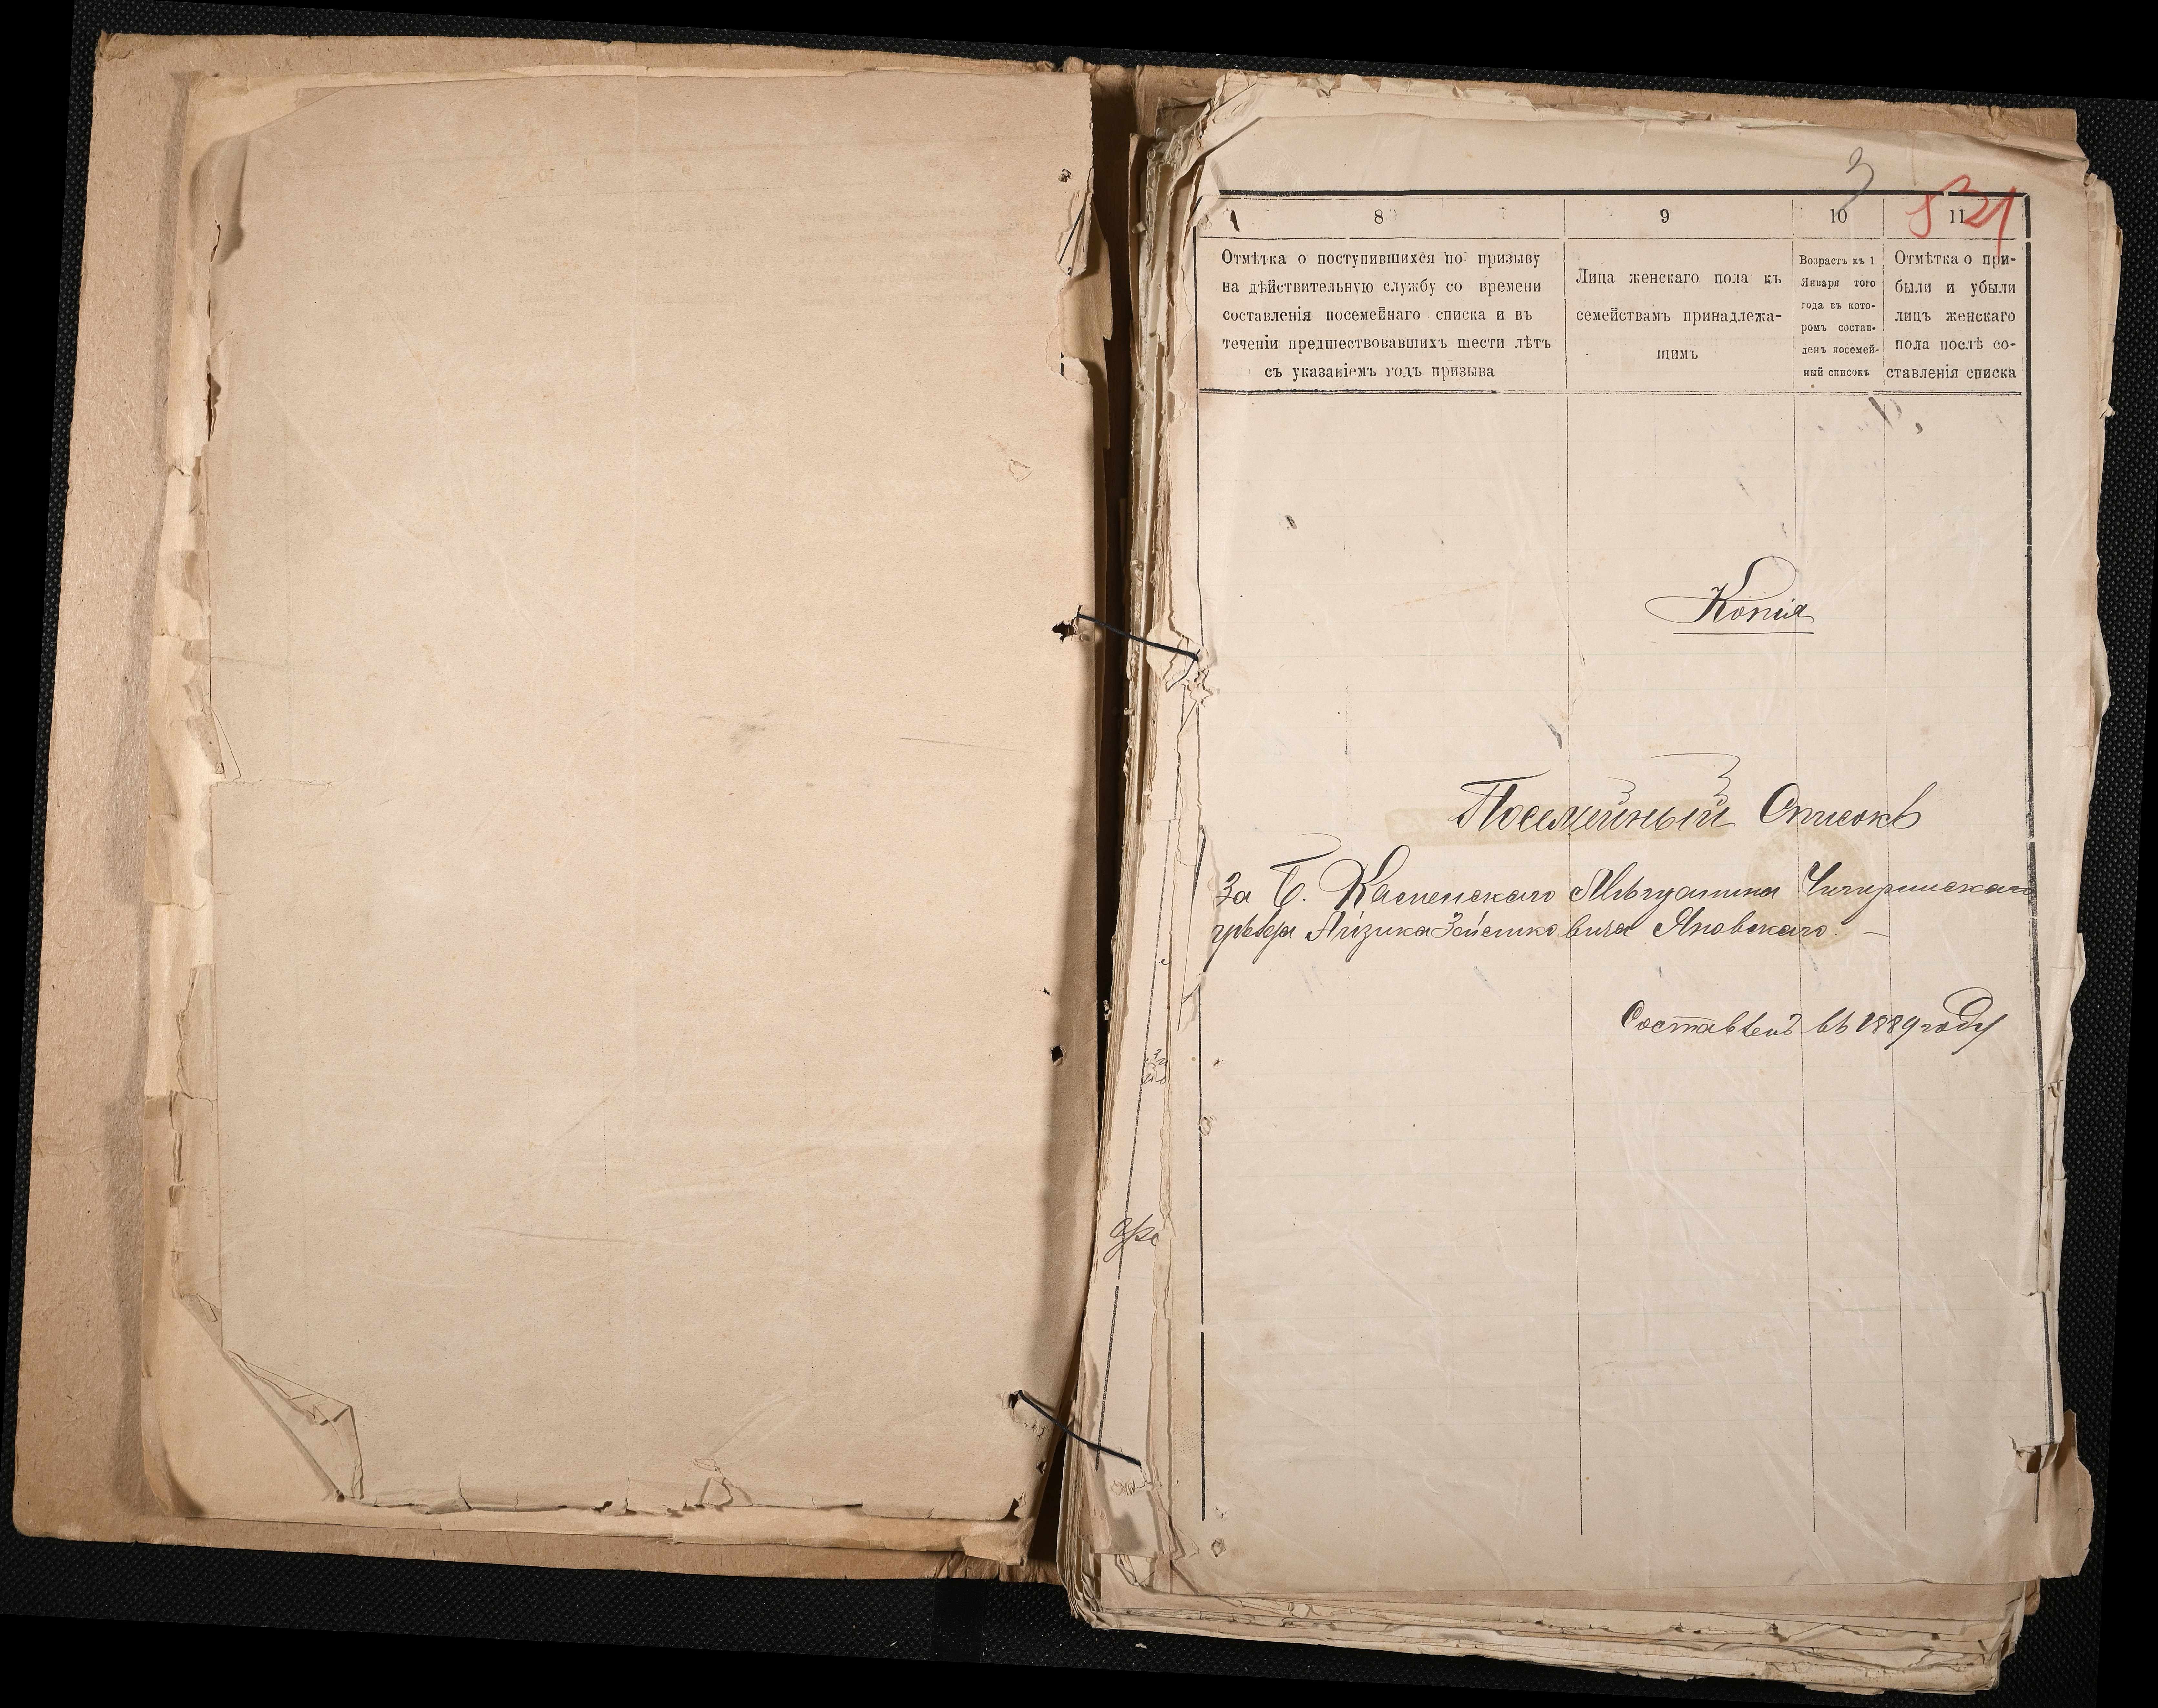 3
521
8
9
10
11
Отмѣтка о поступившихся по призыву
на дѣйствительную службу со времени
составленія посемейнаго списка и въ
теченіи предшествовавшихъ шести лѣтъ
съ указаніемъ годъ призыва
Лица женскаго пола къ
семействамъ принадлежа-
щимъ
Возрастъ къ 1
Января того
года въ кото-
ромъ состав-
ленъ посемей-
ный списокъ
Отмѣтка о при-
были и убыли
лицъ женскаго
пола послѣ со-
ставленія списка
Копія
Посемейный Списокъ
За Б. Каменскаго Мѣщанина Чигиринскаго
уѣзда Айзика Яновскаго. —
Составленъ въ 1889 году